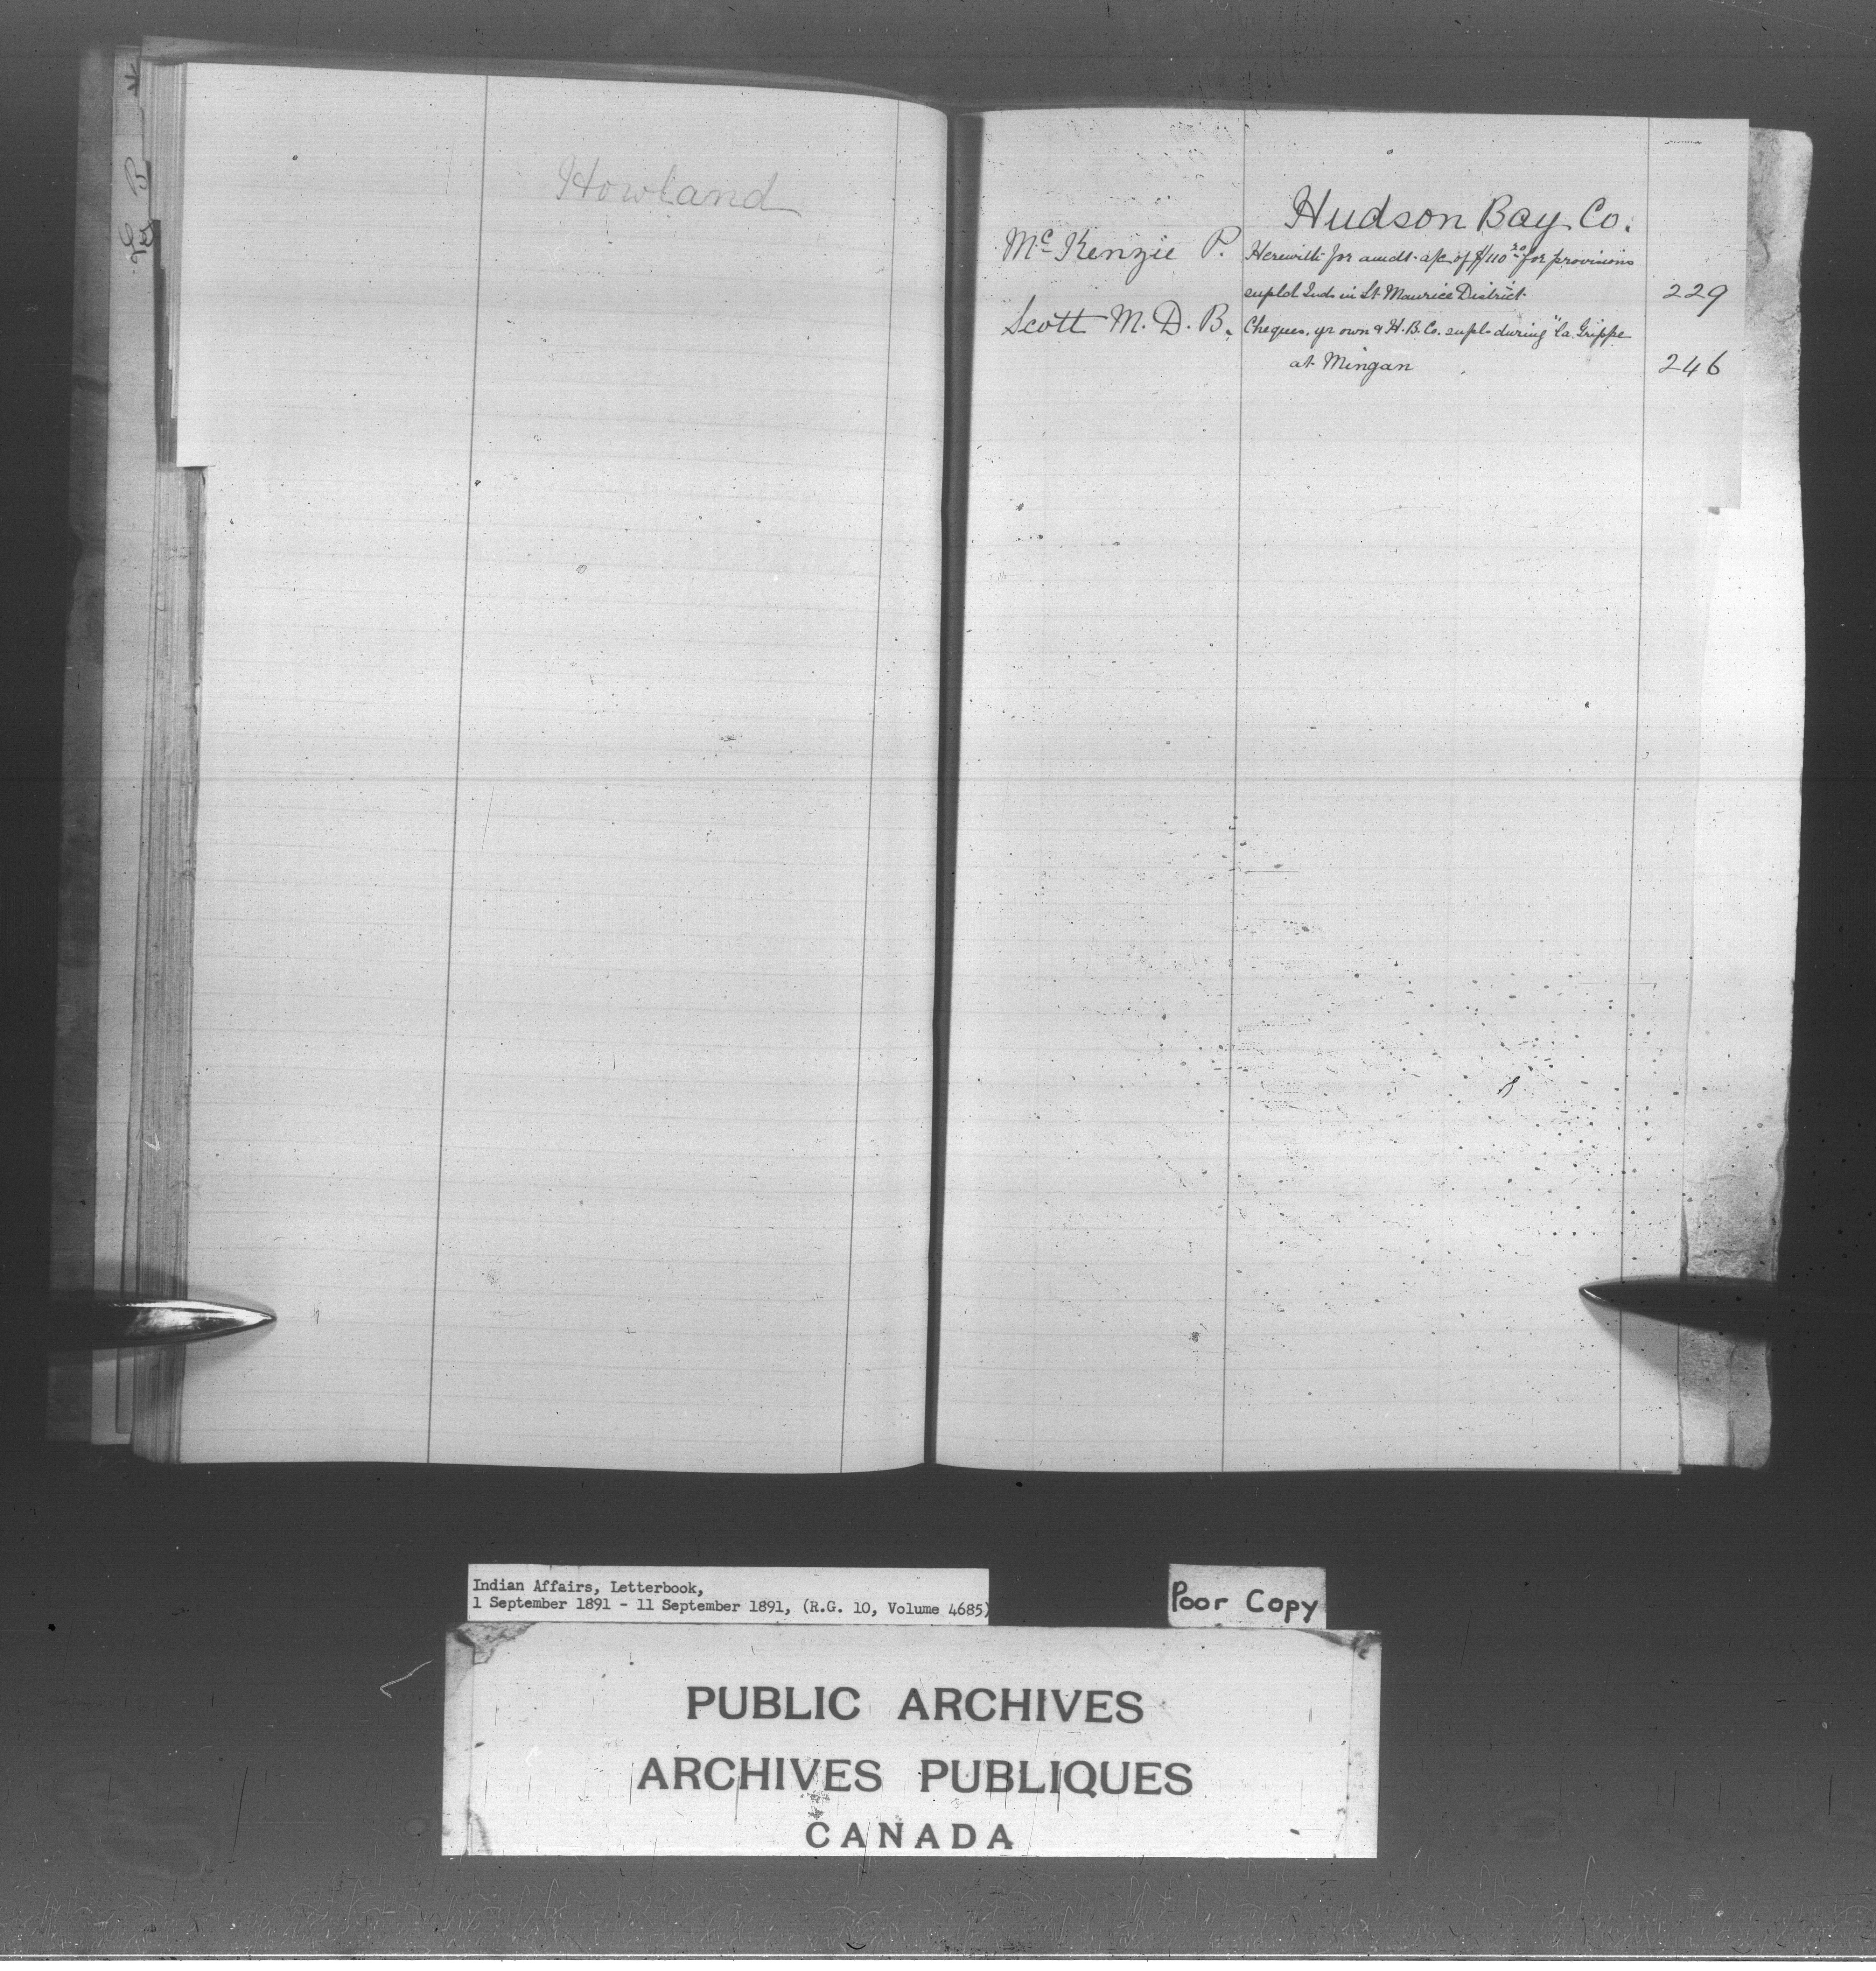 Howland
Hudson Bay Co.
McKenzie P. Herewith for amdt. a/c of $110 20 for provisions
supld Inds in St. Maurice District. 229
Scott M. D. B. Cheques, yr own & H. B. Co. supls during "la Grippe
at Mingan 246
Indian Affairs, Letterbook,
1 September 1891 - 11 September 1891, (R.G. 10, Volume 4685)
Poor Copy
PUBLIC ARCHIVES
ARCHIVES PUBLIQUES
CANADA